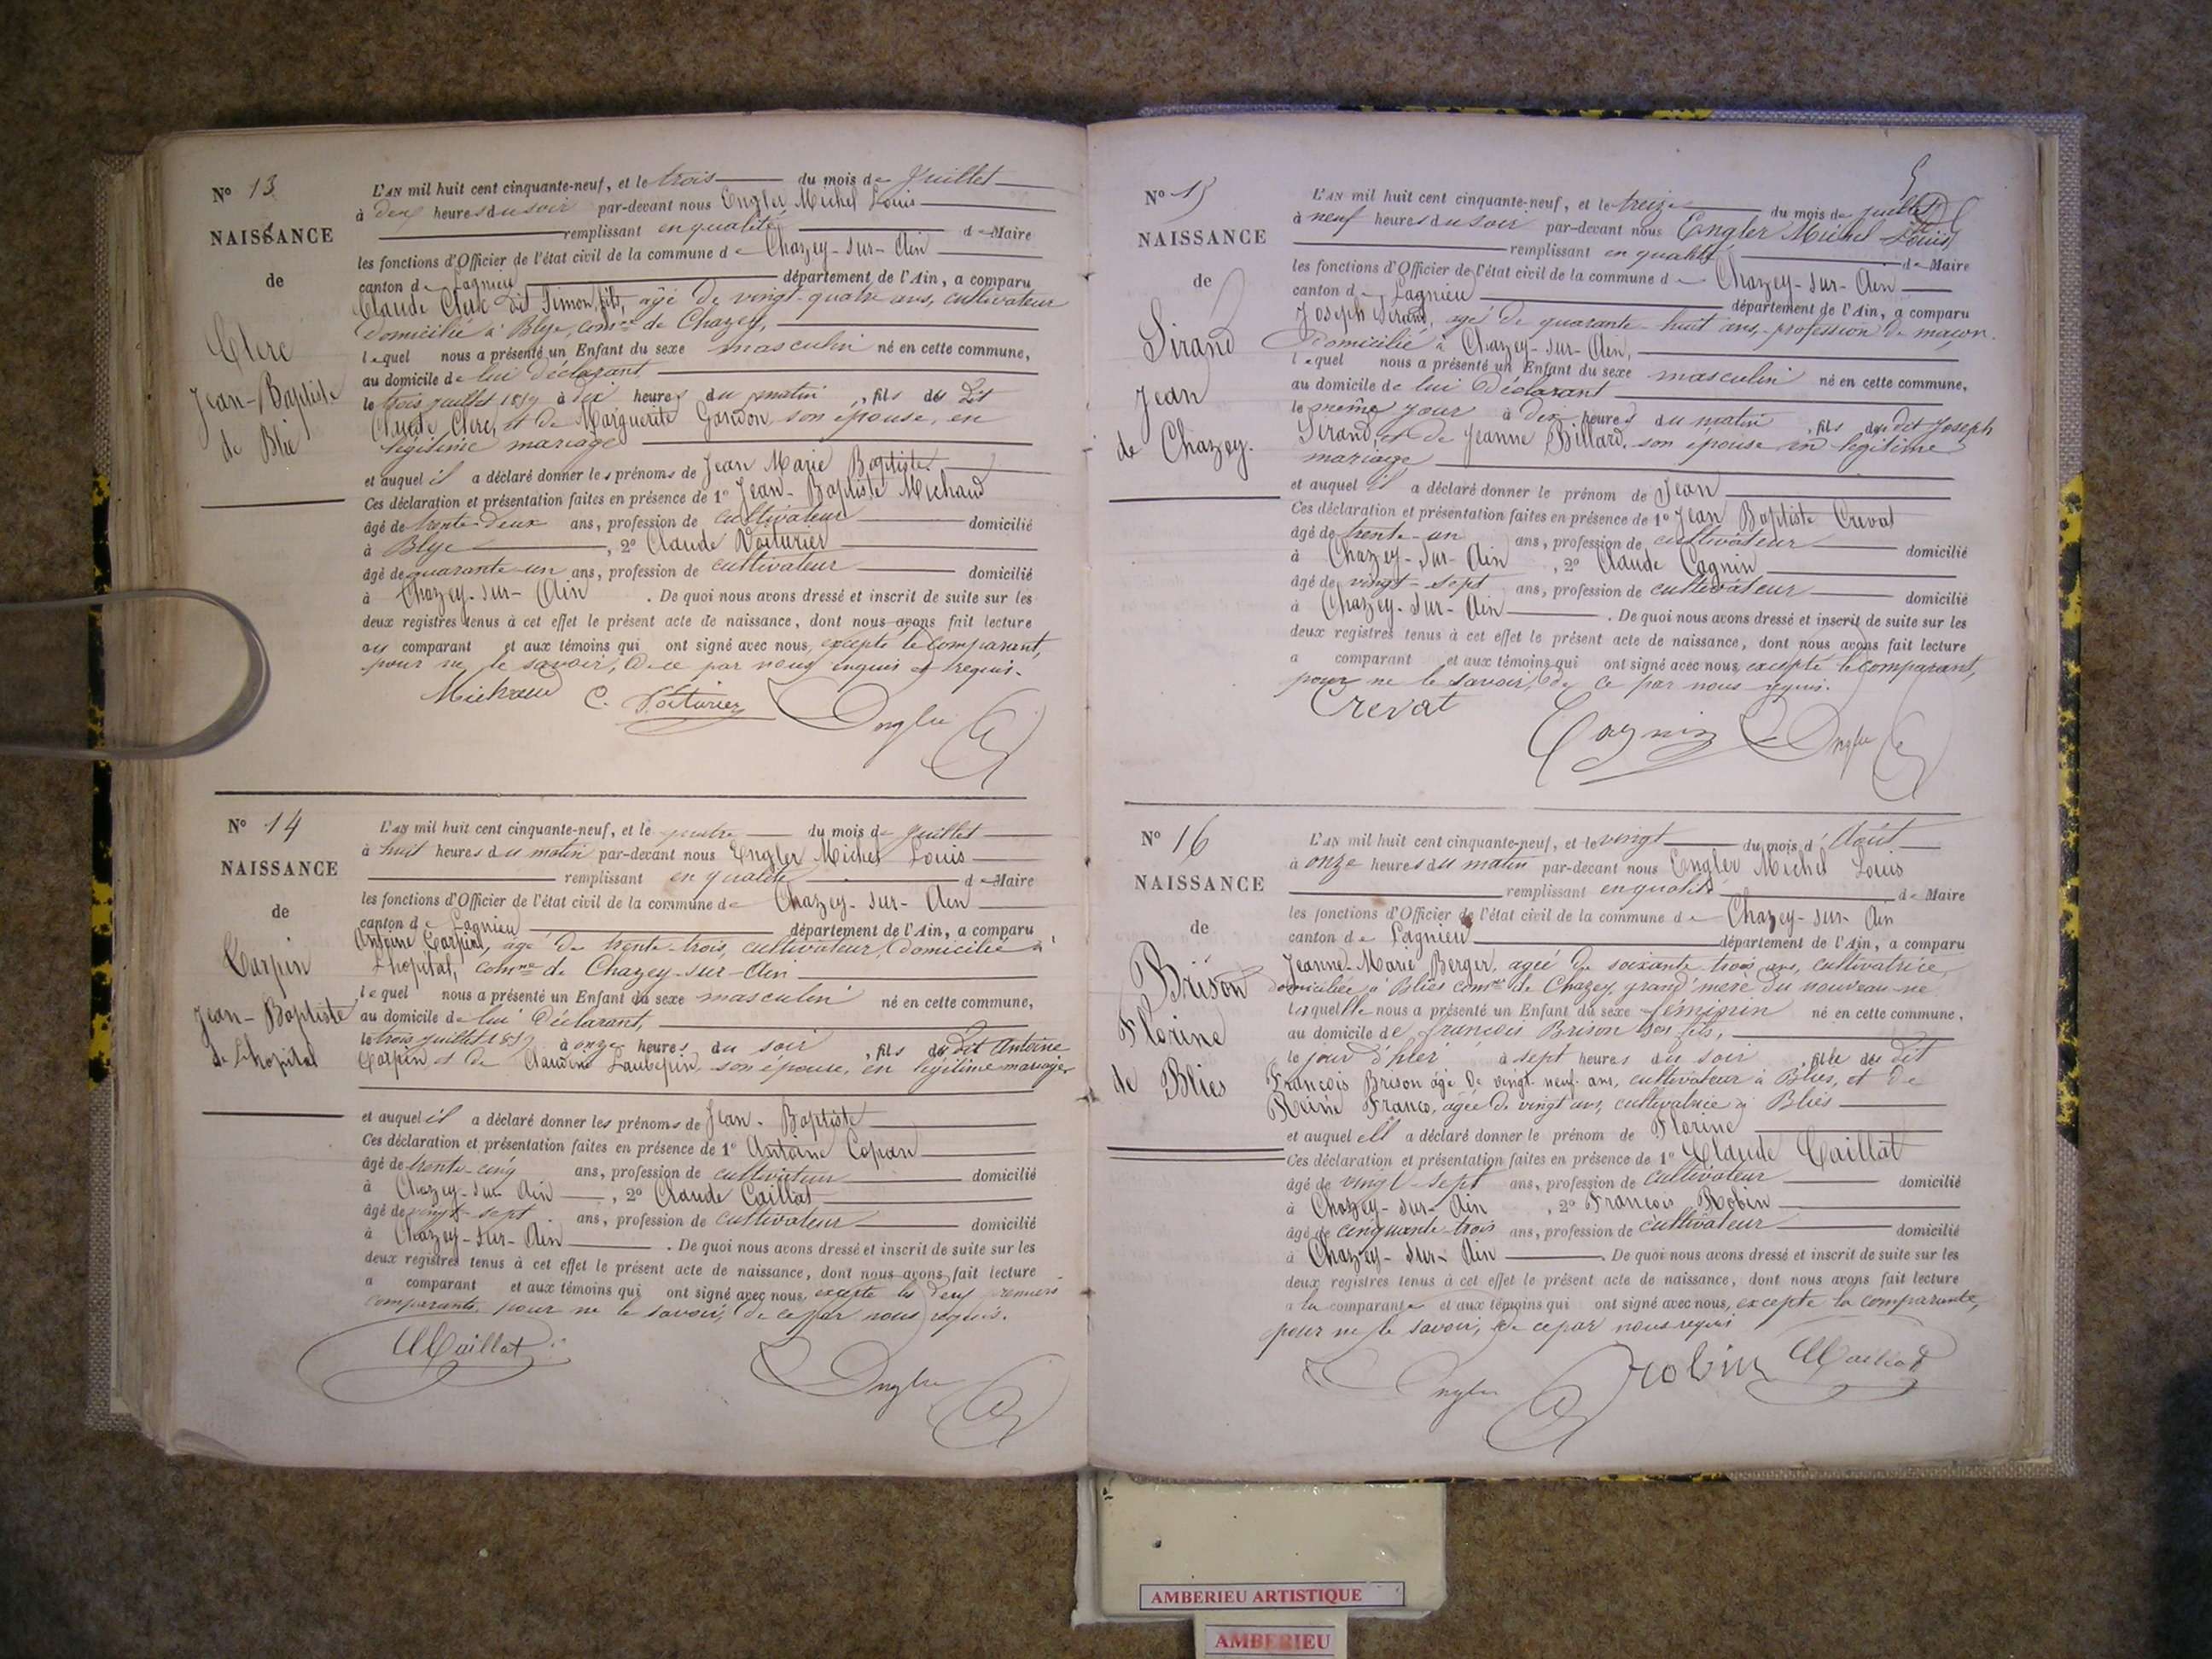 N° 13
NAISSANCE
de
Clerc
Jean-Baptiste
de Blie
L'AN mil huit cent cinquante-neuf, et le trois du mois de Juillet
à dix heures du soir par-devant nous Engler Michel Louis
remplissant en qualité de Maire
les fonctions d'Officier de l'état civil de la commune de Chazey-sur-Ain
canton de Lagnieu département de l'Ain, a comparu
Claude Clerc dit Simon fils, âgé de vingt-quatre ans, cultivateur
domicilié à Blye, comne de Chazey,
lequel nous a présenté un Enfant du sexe masculin né en cette commune,
au domicile de lui déclarant
le trois juillet 1859 à dix heures du matin, fils du dit
Claude Clerc, et de Marguerite Gardon, son épouse, en
légitime mariage
et auquel il a déclaré donner les prénoms de Jean Marie Baptiste
Ces déclaration et présentation faites en présence de 1° Jean-Baptiste Michaud
âgé de trente-deux ans, profession de cultivateur domicilié
à Blye, 2° Claude Voiturier
âgé de quarante-un ans, profession de cultivateur domicilié
à Chazey-sur-Ain. De quoi nous avons dressé et inscrit de suite sur les
deux registres tenus à cet effet le présent acte de naissance, dont nous avons fait lecture
au comparant et aux témoins qui ont signé avec nous, excepté le comparant,
pour ne le savoir, de ce par nous enquis et requis.
Michaud C. Voiturier Engler
N° 14
NAISSANCE
de
Carpin
Jean-Baptiste
de Lhopital
L'AN mil huit cent cinquante-neuf, et le quatre du mois de Juillet
à huit heures du matin par-devant nous Engler Michel Louis
remplissant en qualité de Maire
les fonctions d'Officier de l'état civil de la commune de Chazey-sur-Ain
canton de Lagnieu département de l'Ain, a comparu
Antoine Carpin, âgé de trente-trois, cultivateur, domicilié à
Lhopital, comne de Chazey-sur-Ain
lequel nous a présenté un Enfant du sexe masculin né en cette commune,
au domicile de lui déclarant,
le trois juillet 1859 à onze heures du soir, fils du dit Antoine
Carpin et de Claudine Laubepin, son épouse, en légitime mariage
et auquel il a déclaré donner les prénoms de Jean-Baptiste
Ces déclaration et présentation faites en présence de 1° Antoine Copan
âgé de trente-cinq ans, profession de cultivateur domicilié
à Chazey-sur-Ain, 2° Claude Caillat
âgé de vingt-sept ans, profession de cultivateur domicilié
à Chazey-sur-Ain. De quoi nous avons dressé et inscrit de suite sur les
deux registres tenus à cet effet le présent acte de naissance, dont nous avons fait lecture
a comparant et aux témoins qui ont signé avec nous, excepté les deux premiers
comparants, pour ne le savoir, de ce par nous requis.
Caillat Engler
N° 15
NAISSANCE
de
Sirand
Jean
de Chazey.
L'AN mil huit cent cinquante-neuf, et le treize du mois de juillet
à neuf heures du soir par-devant nous Engler Michel Louis
remplissant en qualité de Maire
les fonctions d'Officier de l'état civil de la commune de Chazey-sur-Ain
canton de Lagnieu département de l'Ain, a comparu
Joseph Sirand, âgé de quarante-huit ans, profession de maçon.
Domicilié à Chazey-sur-Ain,
lequel nous a présenté un Enfant du sexe masculin né en cette commune,
au domicile de lui déclarant
le même jour à dix heures du matin, fils du dit Joseph
Sirand, et de Jeanne Billard, son épouse en légitime
mariage
et auquel il a déclaré donner le prénom de Jean
Ces déclaration et présentation faites en présence de 1° Jean Baptiste Crevat
âgé de trente-un ans, profession de cultivateur domicilié
à Chazey-sur-Ain, 2° Claude Cagnin
âgé de vingt-sept ans, profession de cultivateur domicilié
à Chazey-sur-Ain. De quoi nous avons dressé et inscrit de suite sur les
deux registres tenus à cet effet le présent acte de naissance, dont nous avons fait lecture
a comparant et aux témoins qui ont signé avec nous, excepté le comparant,
pour ne le savoir, de ce par nous requis.
Crevat Cagnin Engler
N° 16
NAISSANCE
de
Brison
Florine
de Blies
L'AN mil huit cent cinquante-neuf, et le vingt du mois d'Août
à onze heures du matin par-devant nous Engler Michel Louis
remplissant en qualité de Maire
les fonctions d'Officier de l'état civil de la commune de Chazey-sur-Ain
canton de Lagnieu département de l'Ain, a comparu
Jeanne-Marie Berger, agée de soixante-trois ans, cultivatrice,
domiciliée à Blies comne de Chazey, grand'mère du nouveau-né
laquelle nous a présenté un Enfant du sexe féminin né en cette commune,
au domicile de François Brison son fils,
le jour d'hier à sept heures du soir, fille du dit
François Brison âgé de vingt-neuf ans, cultivateur à Blies, et de
Reine Franco, agée de vingt ans, cultivatrice à Blies
et auquel ell a déclaré donner le prénom de Florine
Ces déclaration et présentation faites en présence de 1° Claude Caillat
âgé de vingt-sept ans, profession de cultivateur domicilié
à Chazey-sur-Ain, 2° François Robin
âgé de cinquante-trois ans, profession de cultivateur domicilié
à Chazey-sur-Ain. De quoi nous avons dressé et inscrit de suite sur les
deux registres tenus à cet effet le présent acte de naissance, dont nous avons fait lecture
a la comparante et aux témoins qui ont signé avec nous, excepte la comparante,
pour ne le savoir, de ce par nous requis
Engler robin Caillat
AMBERIEU ARTISTIQUE
AMBERIEU